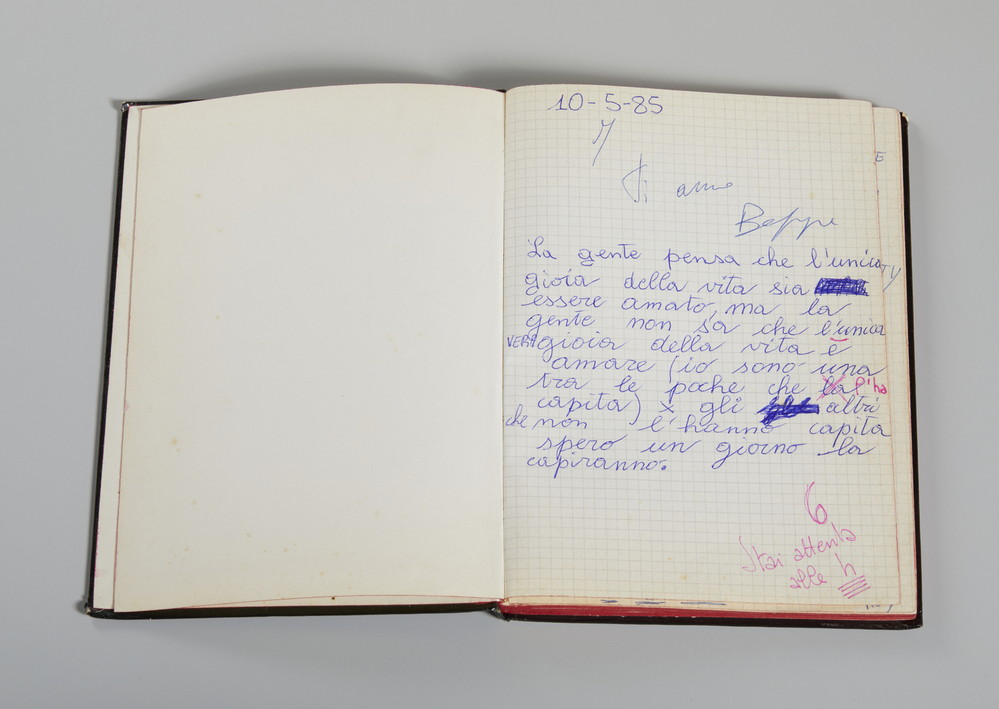 10-5-85
Ti amo
Beppe
La gente pensa che l'unica
gioia della vita sia
essere amato, ma la
gente non sa che l'unica
VERA gioia della vita è
amare (io sono una
tra le poche che la l'ha
capita) x gli altri
che non l'hanno capita
spero un giorno la
capiranno.
6
Stai attenta
alle h